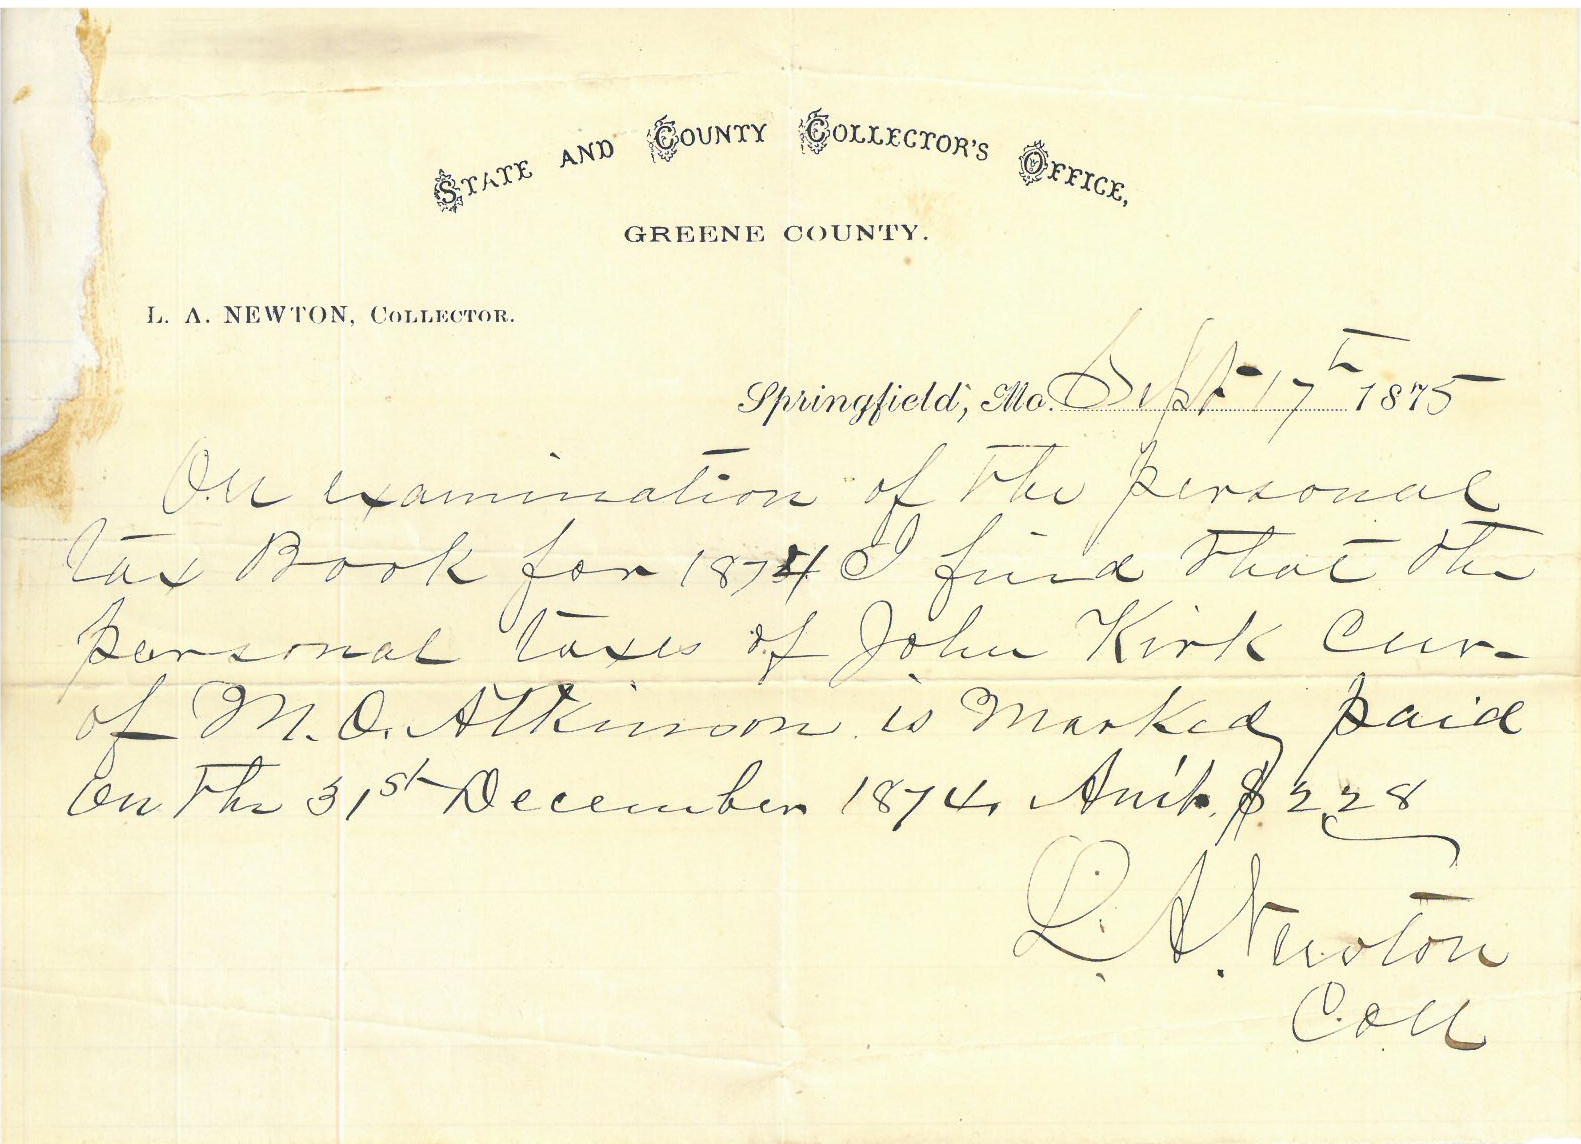 STATE AND COUNTY COLLECTOR'S OFFICE,
GREENE COUNTY.
L. A. NEWTON, COLLECTOR.
Springfield, Mo. Sept 17th 1875
On examination of the personal
tax Book for 1874 I find that the
personal taxes of John Kirk Cur-
of M. O. Atkinson is Marked paid
on the 31st December 1874. Am't. $2.28
L. A. Newton
Coll